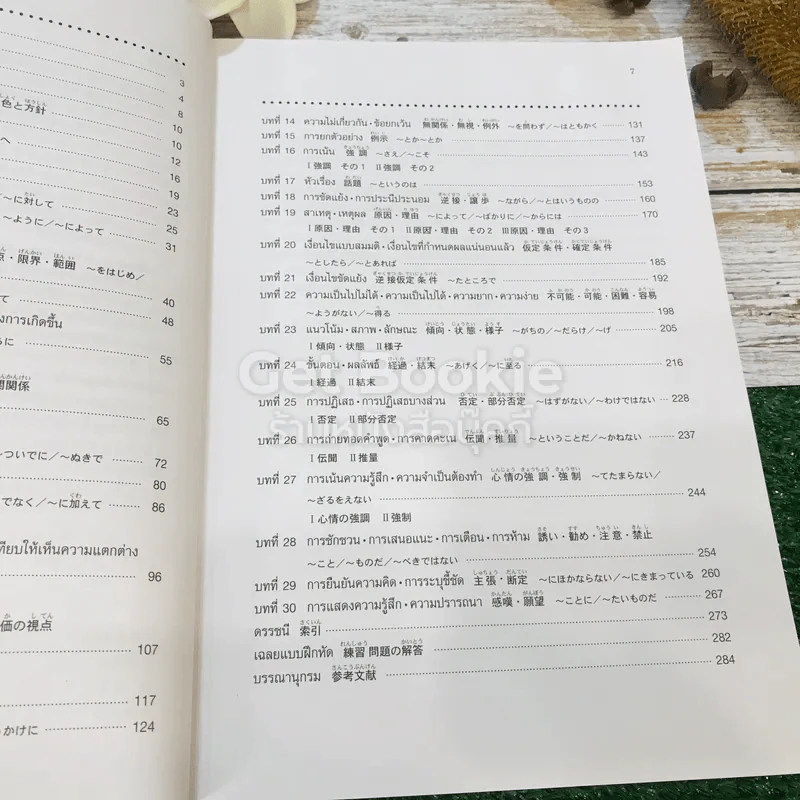 3
4
色と方針
8
10
10
へ
12
16
19
～に対して
23
25
～ように／～によって
31
・限界・範囲 ～をはじめ／
40
て
48
งการเกิดขึ้น
らに
55
間関係
65
～ついでに／～ぬきで
72
80
でなく／～に加えて
86
ทียบให้เห็นความแตกต่าง
96
価の視点
107
117
っかけに
124
7
บทที่ 14 ความไม่เกี่ยวกัน・ข้อยกเว้น 無関係・無視・例外 ～を問わず／～はともかく 131
บทที่ 15 การยกตัวอย่าง 例示 ～とか～とか 137
บทที่ 16 การเน้น 強調 ～さえ／～こそ 143
Ⅰ強調 その1 Ⅱ強調 その2
บทที่ 17 หัวเรื่อง 話題 ～というのは 153
บทที่ 18 การขัดแย้ง・การประนีประนอม 逆接・譲歩 ～ながら／～とはいうものの 160
บทที่ 19 สาเหตุ・เหตุผล 原因・理由 ～によって／～ばかりに／～からには 170
Ⅰ原因・理由 その1 Ⅱ原因・理由 その2 Ⅲ原因・理由 その3
บทที่ 20 เงื่อนไขแบบสมมติ・เงื่อนไขที่กำหนดผลแน่นอนแล้ว 仮定条件・確定条件
～としたら／～とあれば 185
บทที่ 21 เงื่อนไขขัดแย้ง 逆接仮定条件 ～たところで 192
บทที่ 22 ความเป็นไปไม่ได้・ความเป็นไปได้・ความยาก・ความง่าย 不可能・可能・困難・容易
～ようがない／～得る 198
บทที่ 23 แนวโน้ม・สภาพ・ลักษณะ 傾向・状態・様子 ～がちの／～だらけ／～げ 205
Ⅰ傾向・状態 Ⅱ様子
บทที่ 24 ขั้นตอน・ผลลัพธ์ 経過・結末 ～あげく／～に至る 216
Ⅰ経過 Ⅱ結末
บทที่ 25 การปฏิเสธ・การปฏิเสธบางส่วน 否定・部分否定 ～はずがない／～わけではない 228
Ⅰ否定 Ⅱ部分否定
บทที่ 26 การถ่ายทอดคำพูด・การคาดคะเน 伝聞・推量 ～ということだ／～かねない 237
Ⅰ伝聞 Ⅱ推量
บทที่ 27 การเน้นความรู้สึก・ความจำเป็นต้องทำ 心情の強調・強制 ～てたまらない／
～ざるをえない 244
Ⅰ心情の強調 Ⅱ強制
บทที่ 28 การชักชวน・การเสนอแนะ・การเตือน・การห้าม 誘い・勧め・注意・禁止
～こと／～ものだ／～べきではない 254
บทที่ 29 การยืนยันความคิด・การระบุชี้ชัด 主張・断定 ～にほかならない／～にきまっている 260
บทที่ 30 การแสดงความรู้สึก・ความปรารถนา 感嘆・願望 ～ことに／～たいものだ 267
ดรรชนี 索引 273
เฉลยแบบฝึกหัด 練習問題の解答 282
บรรณานุกรม 参考文献 284
Get Bookie
ร้านหนังสือบุ๊คกี้